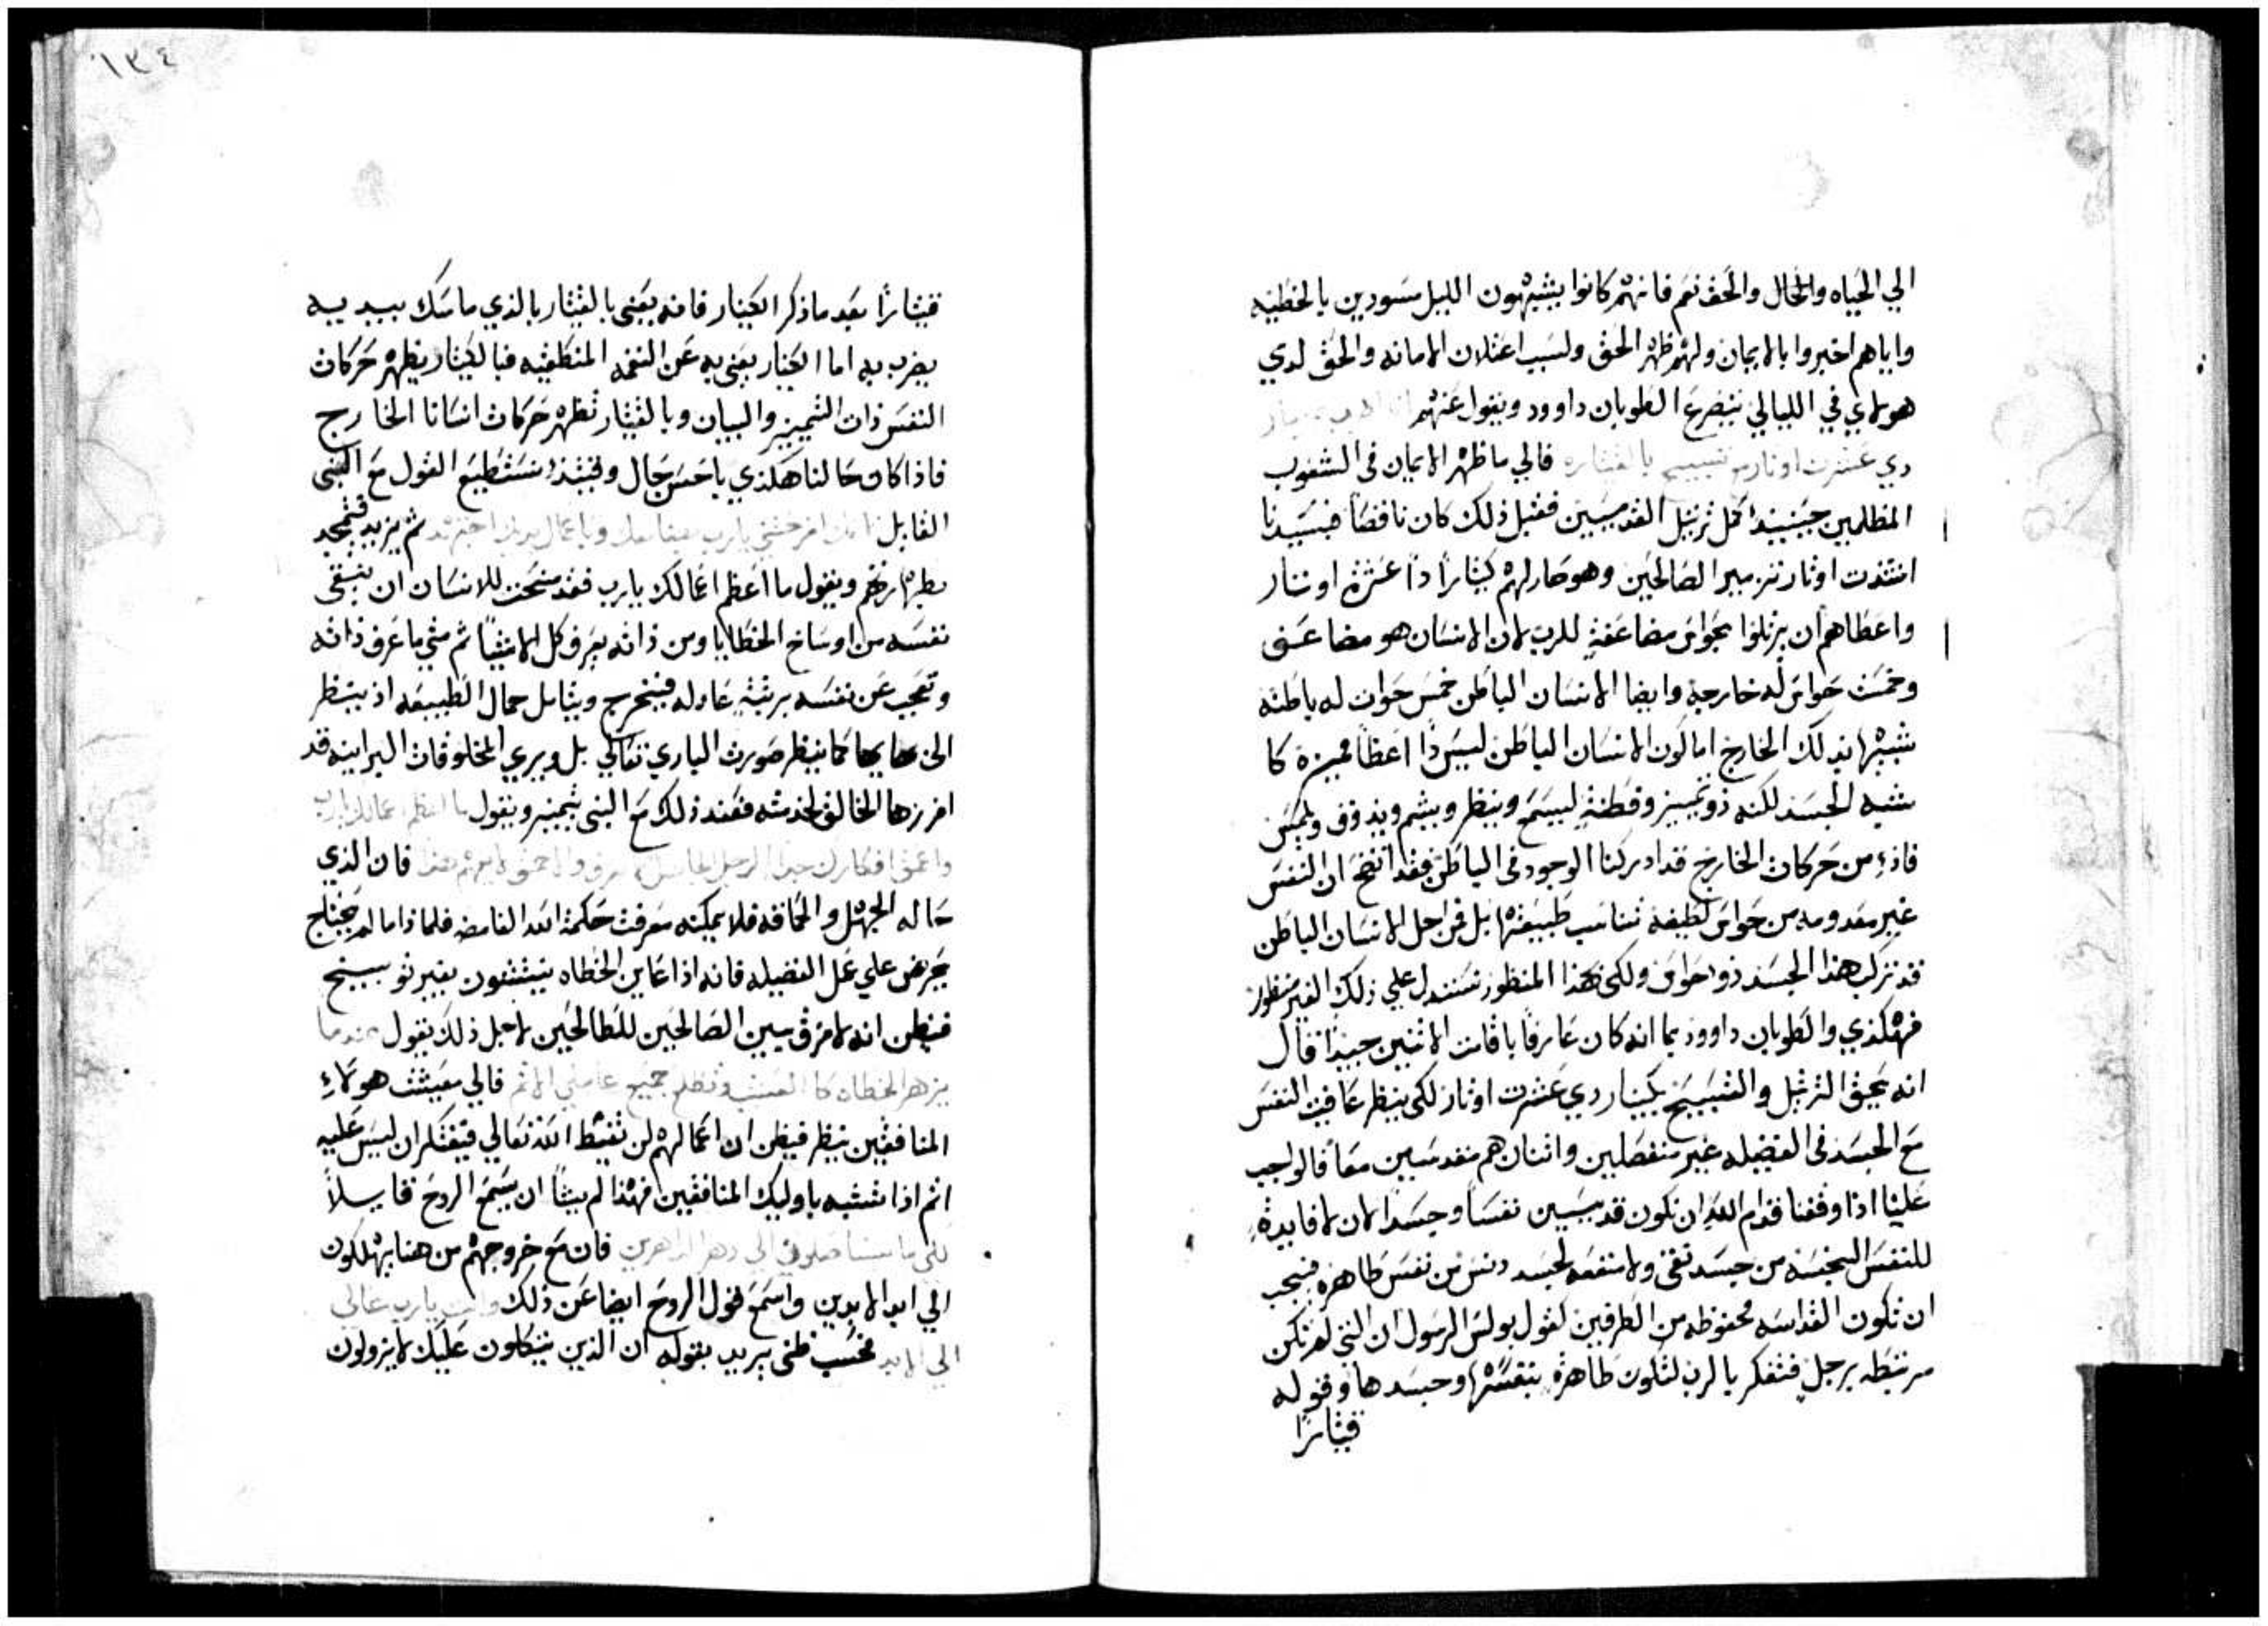 الي الحياه والمحال والحق نعم فانهم كانوا يشبهون الليل مسودين بالخطيه
واياهم اخبروا بالايمان ولهم ظهر الحق ولسبب اعتلان الامانه والحق لدي
هولاي في الليالي يتضرع الطوبان داوود ويقول عنهم
دي عشرت اوتار تسبيح بالقيثاره فالي ما ظهر الايمان في الشعوب
المظلمين حينيذ اكمل ترتيل القديسين فقبل ذلك كان ناقصا فسيدنا
امتدت اوتار تزمير الصالحين وهو صار لهم كيثارا ذا عشرة اوتار
واعطاهم ان يرتلوا بحواس مضاعفة للرب لان الانسان هو مضاعف
وخمست حواس له خارجة وايضا الانسان الباطن خمس حواس له باطنه
شبيها بذلك الخارج اما لكون الانسان الباطن ليس ذا اعظا مميزة كا
شبه الجسد لكنه ذو تمييز وفطنة ليسمع وينظر ويشم ويذوق ويلمس
فاذء من حركات الخارج قد ادركنا الوجود في الباطن فقد اتضح ان النفس
غير معدومه من حواس لطيفة تناسب طبيعتها بل من اجل الانسان الباطن
قد تركب هذا الجسد ذو احواس ولكي بهذا المنظور نستدل علي ذلك الغير منظور
فهكذي والطوبان داوود بما انه كان عارفا باقامت الاثنين جيدا قال
انه يحق الترتيل والتسبيح بكينار دي عشرت اوتار لكي ينظر عافيت النفس
مع الجسد في الفضيله غير منفصلين واثنان هم متقدسين معا فالواجب
علينا اذا وقفنا قدام الله ان نكون قديسين نفسا وجسدا لان لا فايدة
للنفس النجسه من جسد نقي ولا منفعه لجسد دنس من نفس طاهره فيجب
ان تكون القداسه محفوظه من الطرفين كقول بولس الرسول ان التي لم تكن
مرتبطه برجل فتفكر بالرب لتكون طاهرة بنفسها وجسدها وقوله
قيثارا
١٣٤
قيثارا بعد ما ذكر الكينار فانه يعني بالقيثار بالذي ماسك بيديه
يضرب به اما الكينار يعني به عن النغمه المنطقيه فبالكينار يظهر حركات
النفس ذات التمييز والبيان وبالقيثار تظهر حركات انسانا الخارج
فاذا كان حالنا هكذي باحسن حال وحينيذ نستطيع القول مع النبي
القايل افرحتني يارب وباعمال يديك ابتهج ثم يزيد فتمجيد
ويقول ما اعظم اعمالك يارب فقد منحت للانسان ان ينقي
نفسه من اوساخ الخطايا ومن ذاته يعرف كل الاشيا ثم متي ما عرف ذاته
وتعجب عن نفسه فيخرج ويتامل جمال الطبيعه اذ ينظر
الي كما ينظر صورت الباري تعالي بل ويري المخلوقات البرانيه قد
افرزها الخالق لخدمته فعند ذلك مع النبي يتميز ويقول ما اعظم اعمالك يارب
واعمق افكارك جدا الرجل الجاهل لا يعرف والاحمق لا يفهم هذا فان الذي
حاله الجهل والحماقه فلا يمكنه معرفت حكمة الله الغامضه فلماذا ما لم يحتاج
يحرض علي عمل الفضيله فانه اذا عاين الخطاه يثبتون بغير توبيخ
فيظن انه لا فرق بين الصالحين للطالحين لاجل ذلك يقول عندما
يزهر الخطاه كا العشب وتطلع جميع عاملي الاثم فالي معيشت هولاء
المنافقين ينظر فيظن ان اعمالهم لن تغيظ الله تعالي فيفتكر ان ليس عليه
اثم اذا تشبه باوليك المنافقين فهذا لم يشا ان يسمع الروح قايلا
الي دهر الداهرين فان مع خروجهم من هنا يهلكون
الي ابد الابدين واسمع قول الروح ايضا عن ذلك وانت يارب عالي
الي الابد فحسب ظني يريد بقوله ان الذين يتكلون عليك لا يزولون